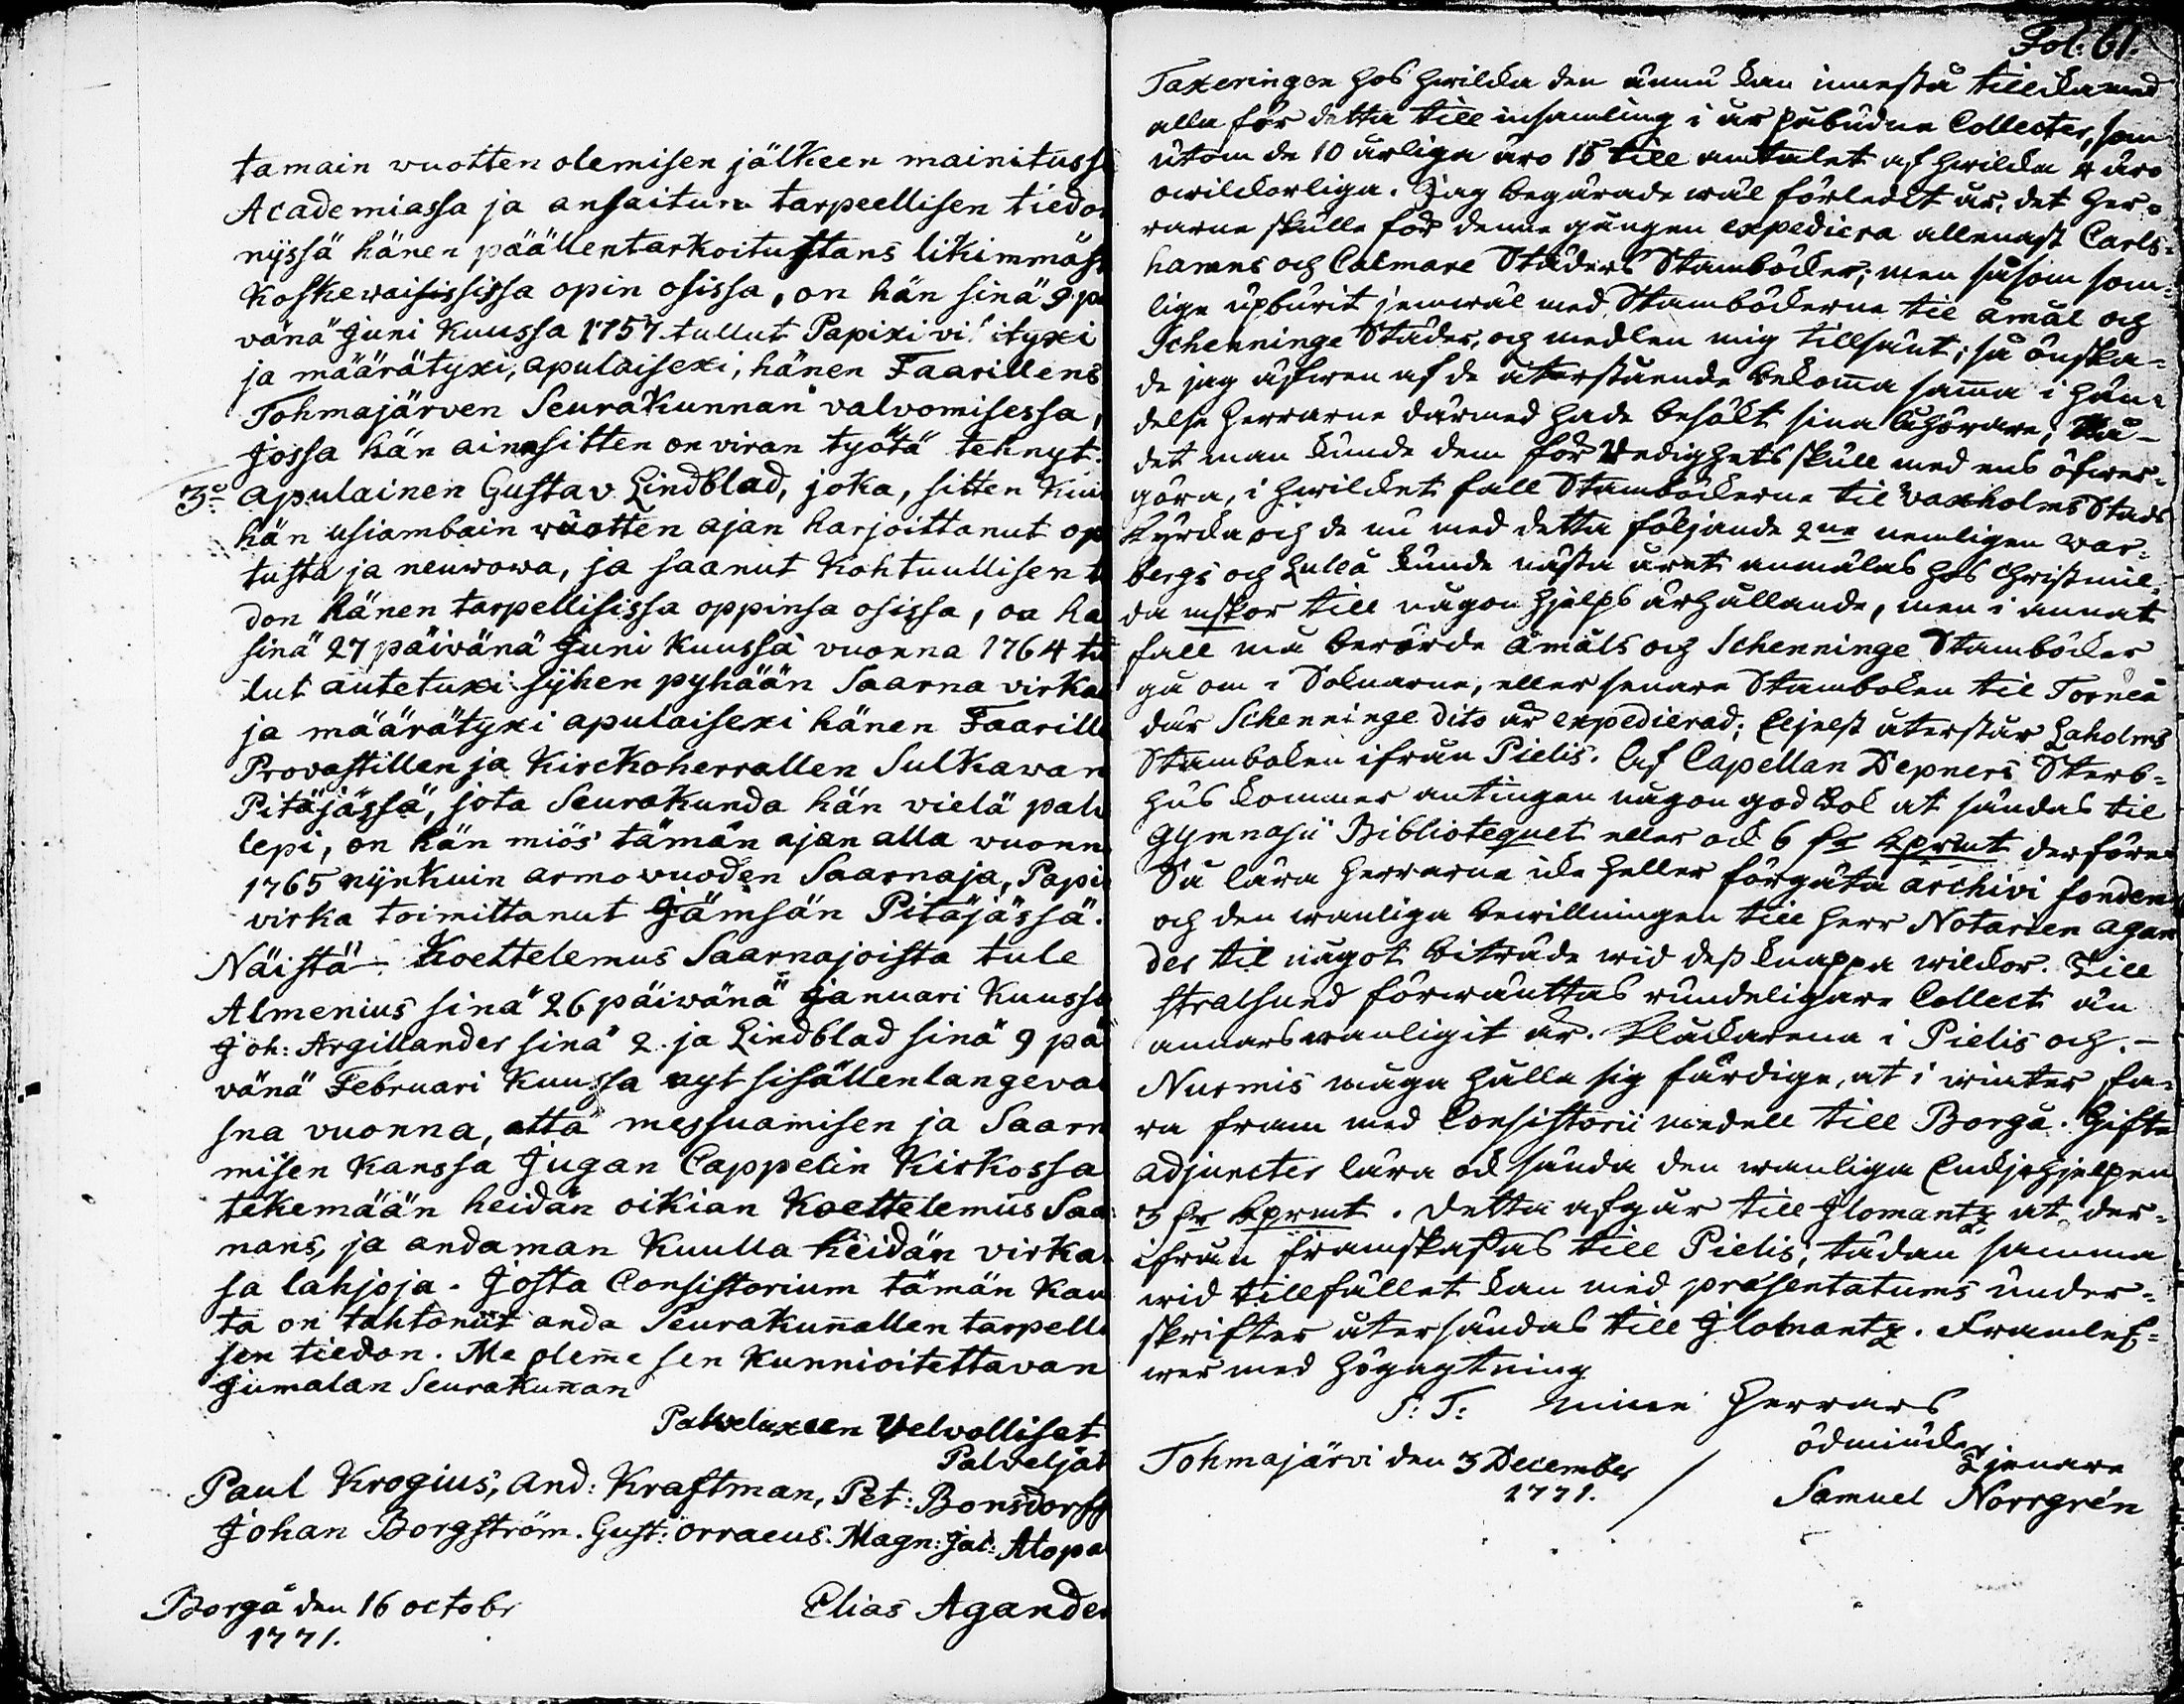 tamain vuotten olemisen jälkeen mainitussa
Academiassa ja ansaitun tarpeellisen tiedon
nijssä hänen päällentarkoitustans likimmäst
Koskewaisissa opin osissa, on hän sinä 9 pä
vänä Juni Kuussa 1757 tullut Papixi vihityxi
ja määrätyxi, apulaisexi, hänen Faarillens
Tohmajärven Seurakunnan valvomisessa,
Jossa hän aina sitten on viran työtä tehnyt.
3o Apulainen Gustav Lindblad, joka, sitten kuin
hän usiambain wuotten ajan harjoittanut op
tusta ja neuwowa, ja saanut Kohtuullisen t
don hänen tarpellisissa oppinsa osissa, on ha
sinä 27 päivänä Juni Kuussa vuonna 1764 tu
lut autetuxi sijhen pyhään Saarna virka
ja määrätyxi apulaisexi hänen Faarille
Provastillen ja Kirckoherrallen Sulkawan
Pitäjässä, jota Seurakunda hän vielä palv
lepi, on hän miös tämän ajan alla vuonn
1765 nijnkuin armovuoden Saarnaja, Papi
virka toimittanut Jämsän Pitäjässä.
Näistä Koettelemus Saarnajoista tule
Almenius sinä 26 päiwänä Januari Kuussa
Joh: Argillander sinä 2. ja Lindblad sinä 9 pä
vänä Februari Kuussa nyt sisällenlangeva
sna vuonna, että messuamisen ja Saarn
misen Kanssa Jugan Cappelin Kirkossa
tekemään heidän oikian Koettelemus Saa
nans, ja andaman Kuulla heidän virka
sa lahjoja. Josta Consistorium tämän Kau
ta on tahtonut anda Seurakunnallen tarpelli
sen tiedon. Me olemme sen Kunnioitettavan
Jumalan Seurakunnan
Palveluxeen Velvolliset
Palveljat
Paul Krogius, And: Kraftman, Pet: Bonsdorff
Johan Borgström. Gust: Orraeus. Magn: Jac: Alopa
Borgå den 16 octobr Elias Agander
1771.
Fol: 61.
Taxeringen hos hwilka den ännu kan innestå tillika med
alla för detta till insamling i år påbudne Collecter, som
utom de 10 årliga äro 15 till antalet af hwilka 4 äro
owilkorliga. Jag begärade wäl förledit år, det Her-
rarne skulle för denne gången expediera allenast Carls-
hamns och Calmare Städers Stamböcker; men såsom som-
lige upburit jemwäl med Stamböckerne til Åmål och
Schenninge Städer, och medlen mig tillsänt; så önska-
de jag äfwen af de återstående bekomma samma i hän-
delse Herrarne därmed hade besökt sina åhörare,
det man kunde dem för redighets skull med ens öfwer-
göra, i hwilket fall Stamböckerne til Vaxholms Stads
Kyrka och de nu med detta följande 2ne nemligen War-
bergs och Luleå kunde nästa året anmälas hos Christmil-
da mskor till någon hjelps ärhållande, men i annat
fall må berörde Åmåls och Schenninge Stamböcker
gå om i Soknarne, eller senare Stamboken til Torneå
där Schenninge dito är expedierad; Eljest återstår Laholms
Stamboken ifrån Pielis. Af Capellan Depners Sterb-
hus kommer antingen någon god bok at sändas til
Gymnasii Bibliotequet eller ock 6 kprmt derföre
Så lära Herrarne icke heller förgäta archivi fonden
och den wanliga bewillningen till Herr Notarien Agan
der til något biträde wid dess knappa wilkor. Till
Stralsund förwänttas rundeligare Collect än
annars wanligit är. Klåckarena i Pielis och
Nurmis måga hålla sig färdige, at i winter fa-
ra fram med Consistorii medell till Borgå. Gifte
adjuncter lära ock sända den wanliga Enckjehjelpen
3 kprmt. Detta afgår till Ilomantz at der-
ifrån framskaffas till Pielis, dädan samma
wid tillfället kan med præsentatums under-
skrifter återsändas till Ilomantz. Framlef-
wer med högagtning
S: T: Mine Herrars
ödmiuke
Tjenare
Tohmajärvi den 3 December
1771.
Samuel Norrgrén